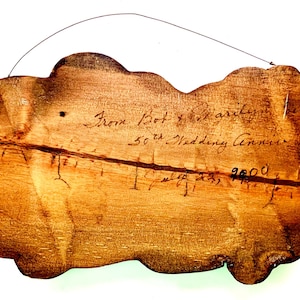 From Bob & Marilyn
50th Wedding Anniv
2000